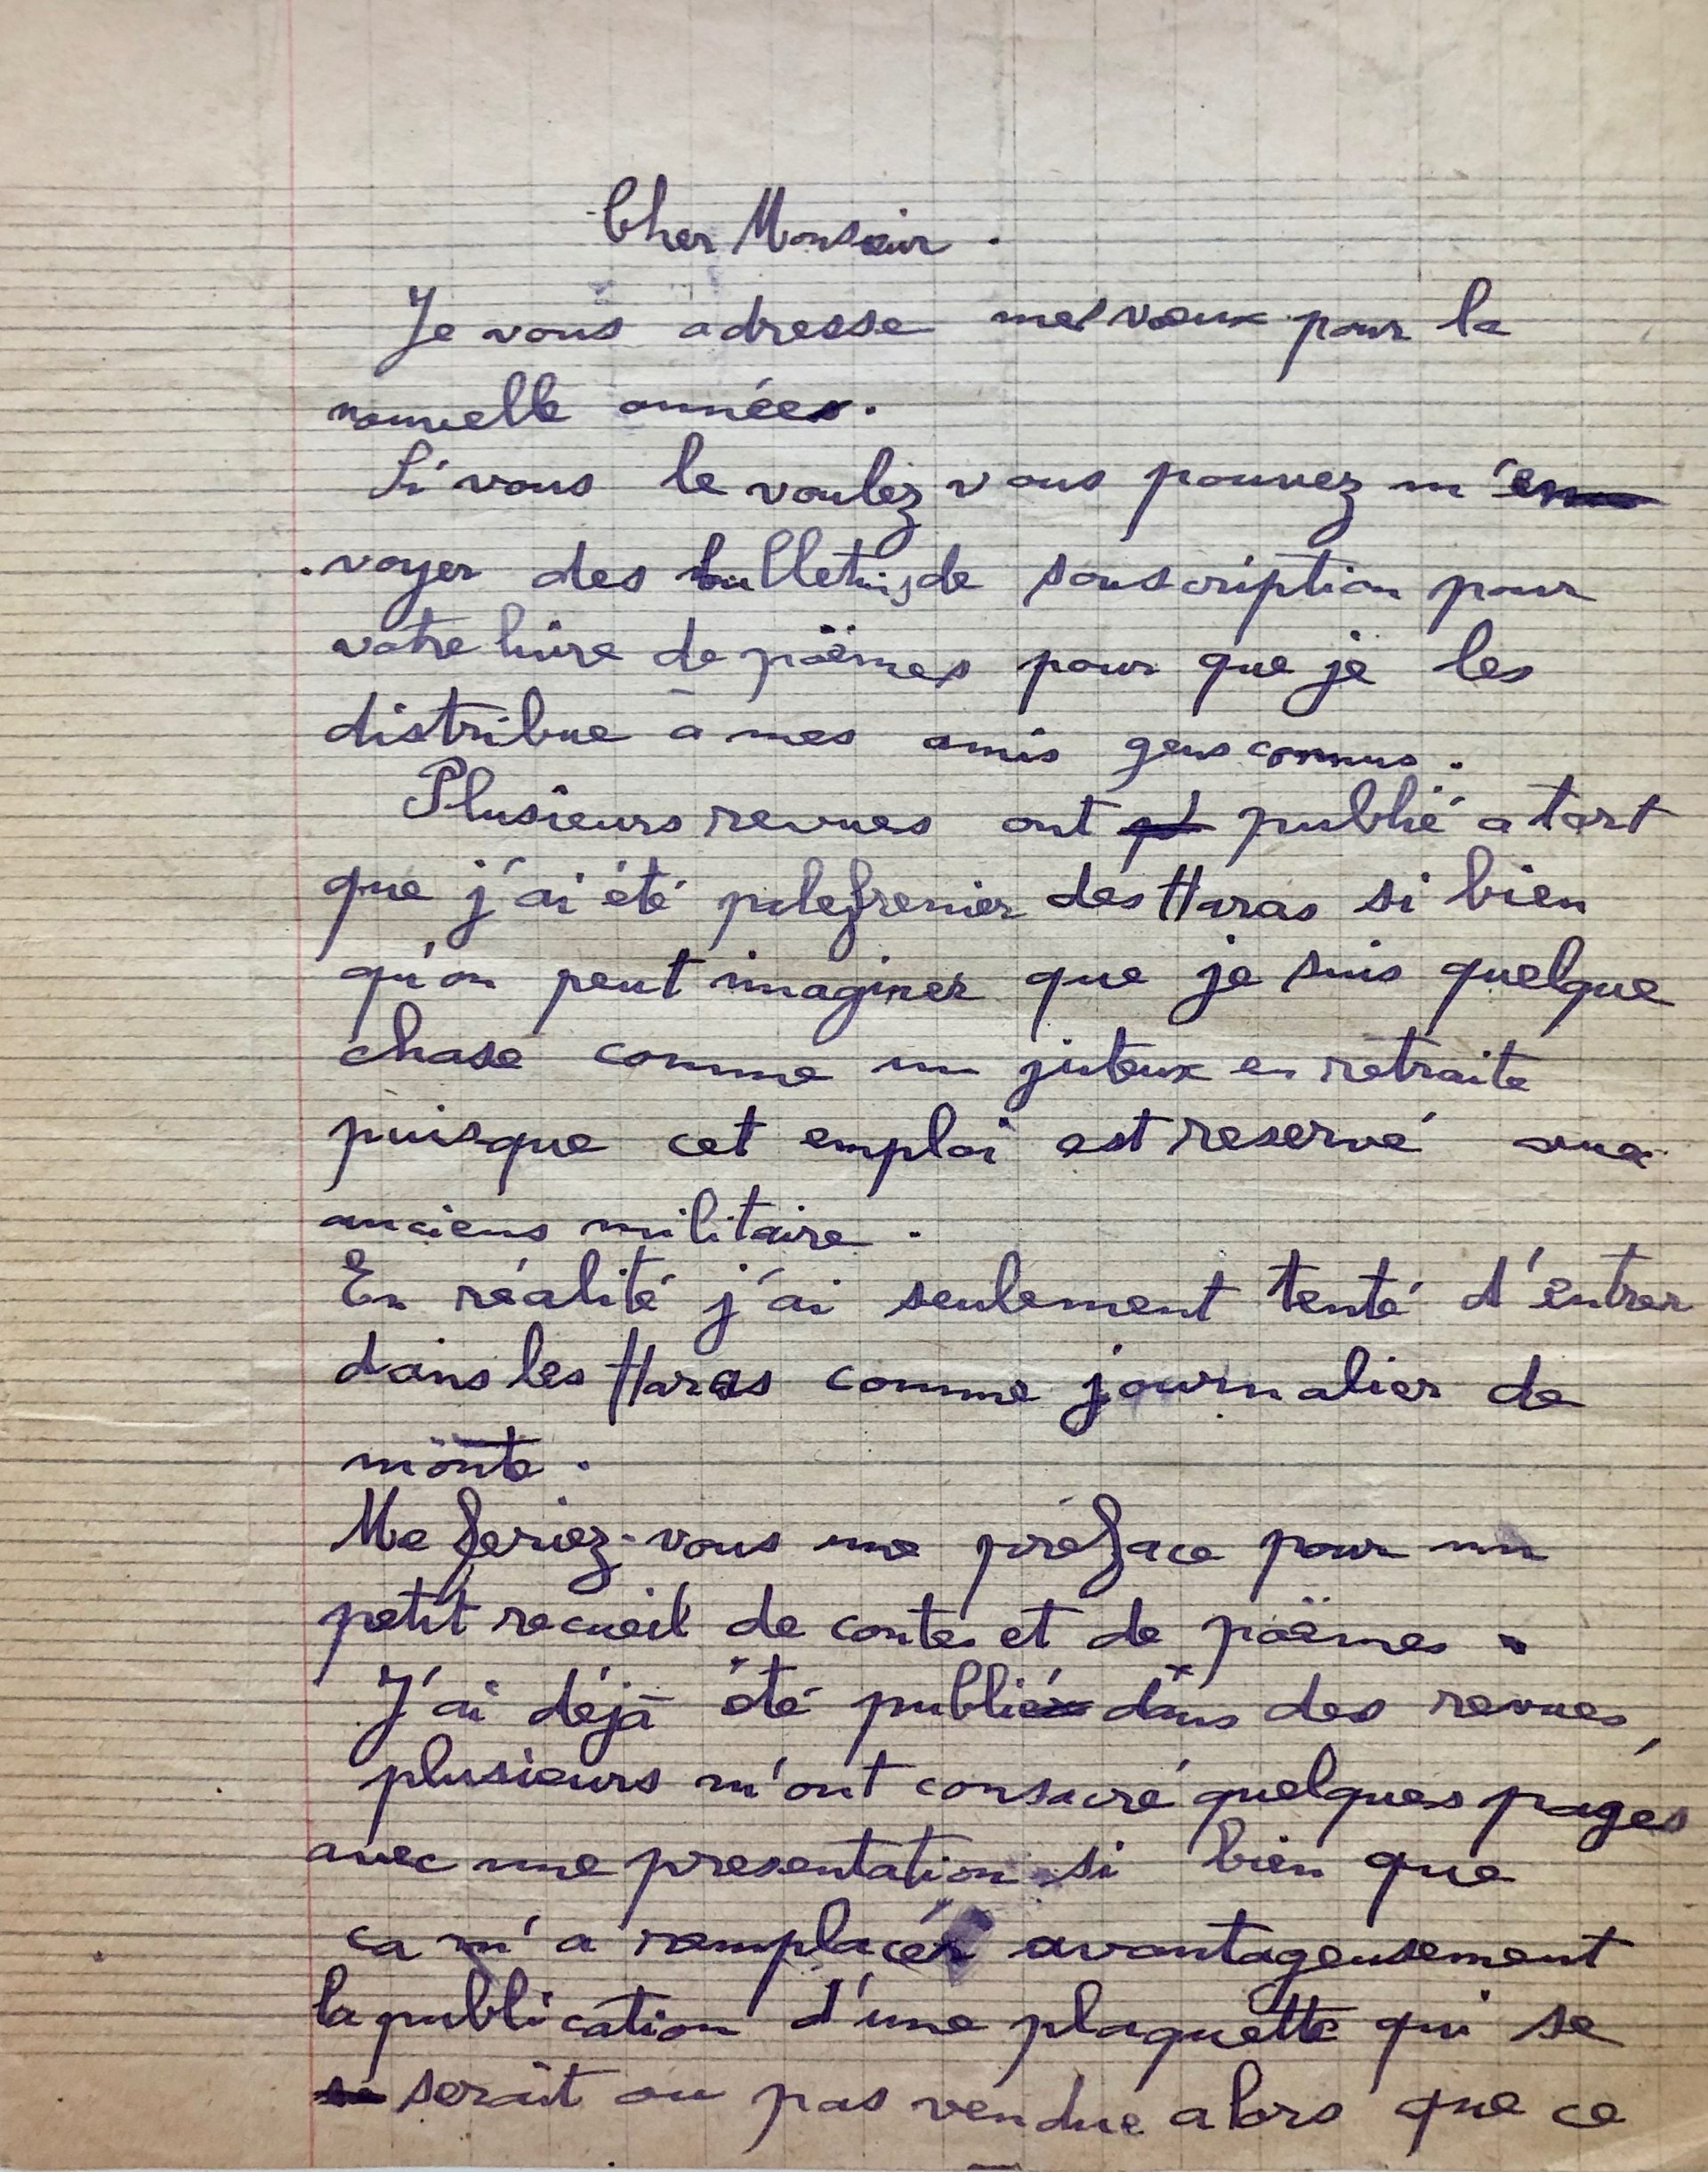 Cher Monsieur.
Je vous adresse mes vœux pour la
nouvelle année.
Si vous le voulez vous pouvez m'en
voyer des bulletins de souscription pour
votre livre de poëmes pour que je les
distribue a mes amis gens connus.
Plusieurs revues ont publié a tort
que j'ai été palefrenier des Haras si bien
qu'on peut imaginer que je suis quelque
chose comme un juteux en retraite
puisque cet emploi est reservé aux
anciens militaire.
En réalité j'ai seulement tenté d'entrer
dans les Haras comme journalier de
monte.
Me feriez-vous une préface pour un
petit recueil de contes et de poëmes.
J'ai déjà été publié dans des revues,
plusieurs m'ont consacré quelques pages
avec une presentation si bien que
ca m'a remplacé avantageusement
la publication d'une plaquette qui se
serait ou pas vendue alors que ce